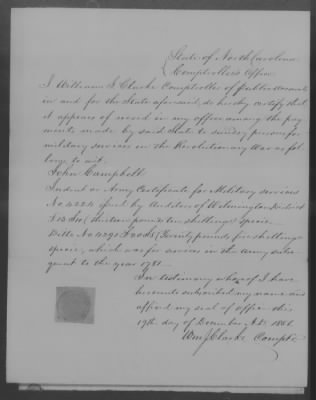 State of North Carolina
Comptroller's Office
I William J. Clarke Comptroller of Public Accounts
in and for the State aforesaid, do hereby certify that
it appears of record in my office among the pay
ments made by said State to sundry persons for
military services in the Revolutionary War as fol
lows to wit.
John Campbell
Indent or Army Certificate for Military services
No 4224 by Auditors of Wilmington District
(thirteen pounds ten shillings) specie
Ditto No 4291 (Twenty pounds five shillings)
specie, which was for services in the Army subse
quent to the year 1781.
In testimony whereof I have
hereunto subscribed my name and
affixed my seal of office this
19th day of December A.D. 1851
Wm J. Clarke Compt